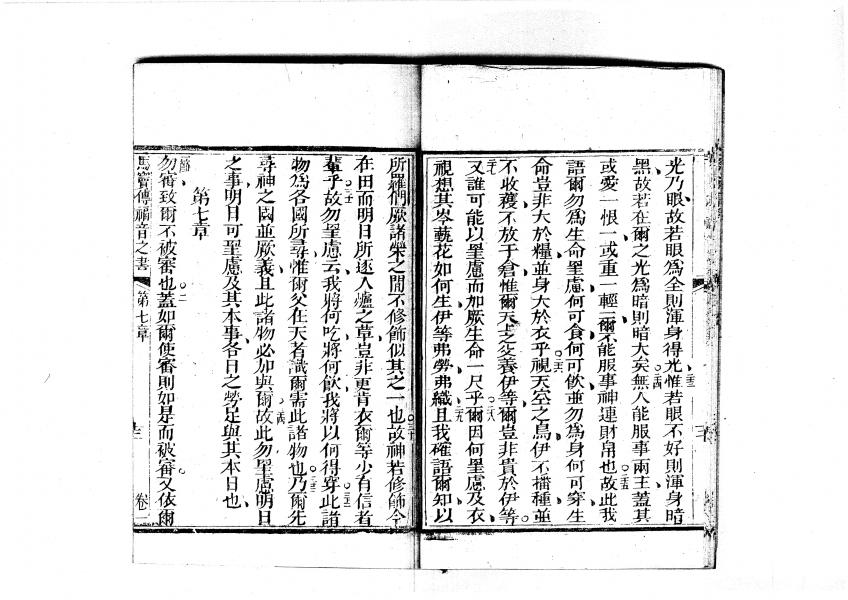 光乃眼故若眼爲全則渾身得光惟若眼不好則渾身暗
黑故若在爾之光爲暗則暗大矣無人能服事兩主蓋其
或愛一恨一或重一輕一爾不能服事神連財帛也故此我
語爾勿爲生命罣慮何可食何可飲並勿爲身何可穿生
命豈非大於糧並身大於衣乎視天空之鳥伊不播種並
不收穫不放于倉惟爾天上之父養伊等爾豈非貴於伊等
又誰可能以罣慮而加厥生命一尺乎爾因何罣慮及衣
視想其岑藐花如何生伊等弗勞弗織且我確語爾知以
所羅們厥諸榮之間不修飾似其之一也故神若修飾今
在田而明日所逐入爐之草豈非更肯衣爾等少有信者
輩乎故勿罣慮云我將何吃將何飲我將以何得穿此諸
物爲各國所尋惟爾父在天者識爾需此諸物也乃爾先
尋神之國並厥義且此諸物必加與爾故此勿罣慮明日
之事明日可罣慮及其本事各日之勞足與其本日也
第七章
勿審致爾不被審也蓋如爾使審則如是而被審又依爾
馬竇傳福音之書 第七章 卷一